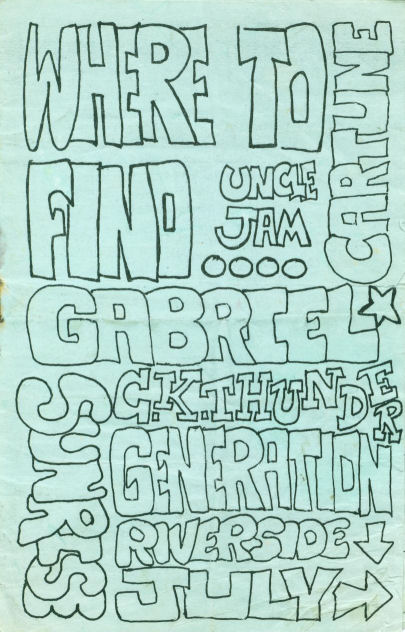 WHERE TO
FIND
UNCLE
JAM
CARTUNE
GABRIEL
SUNRISE
C.K. THUNDER
GENERATION
RIVERSIDE
JULY